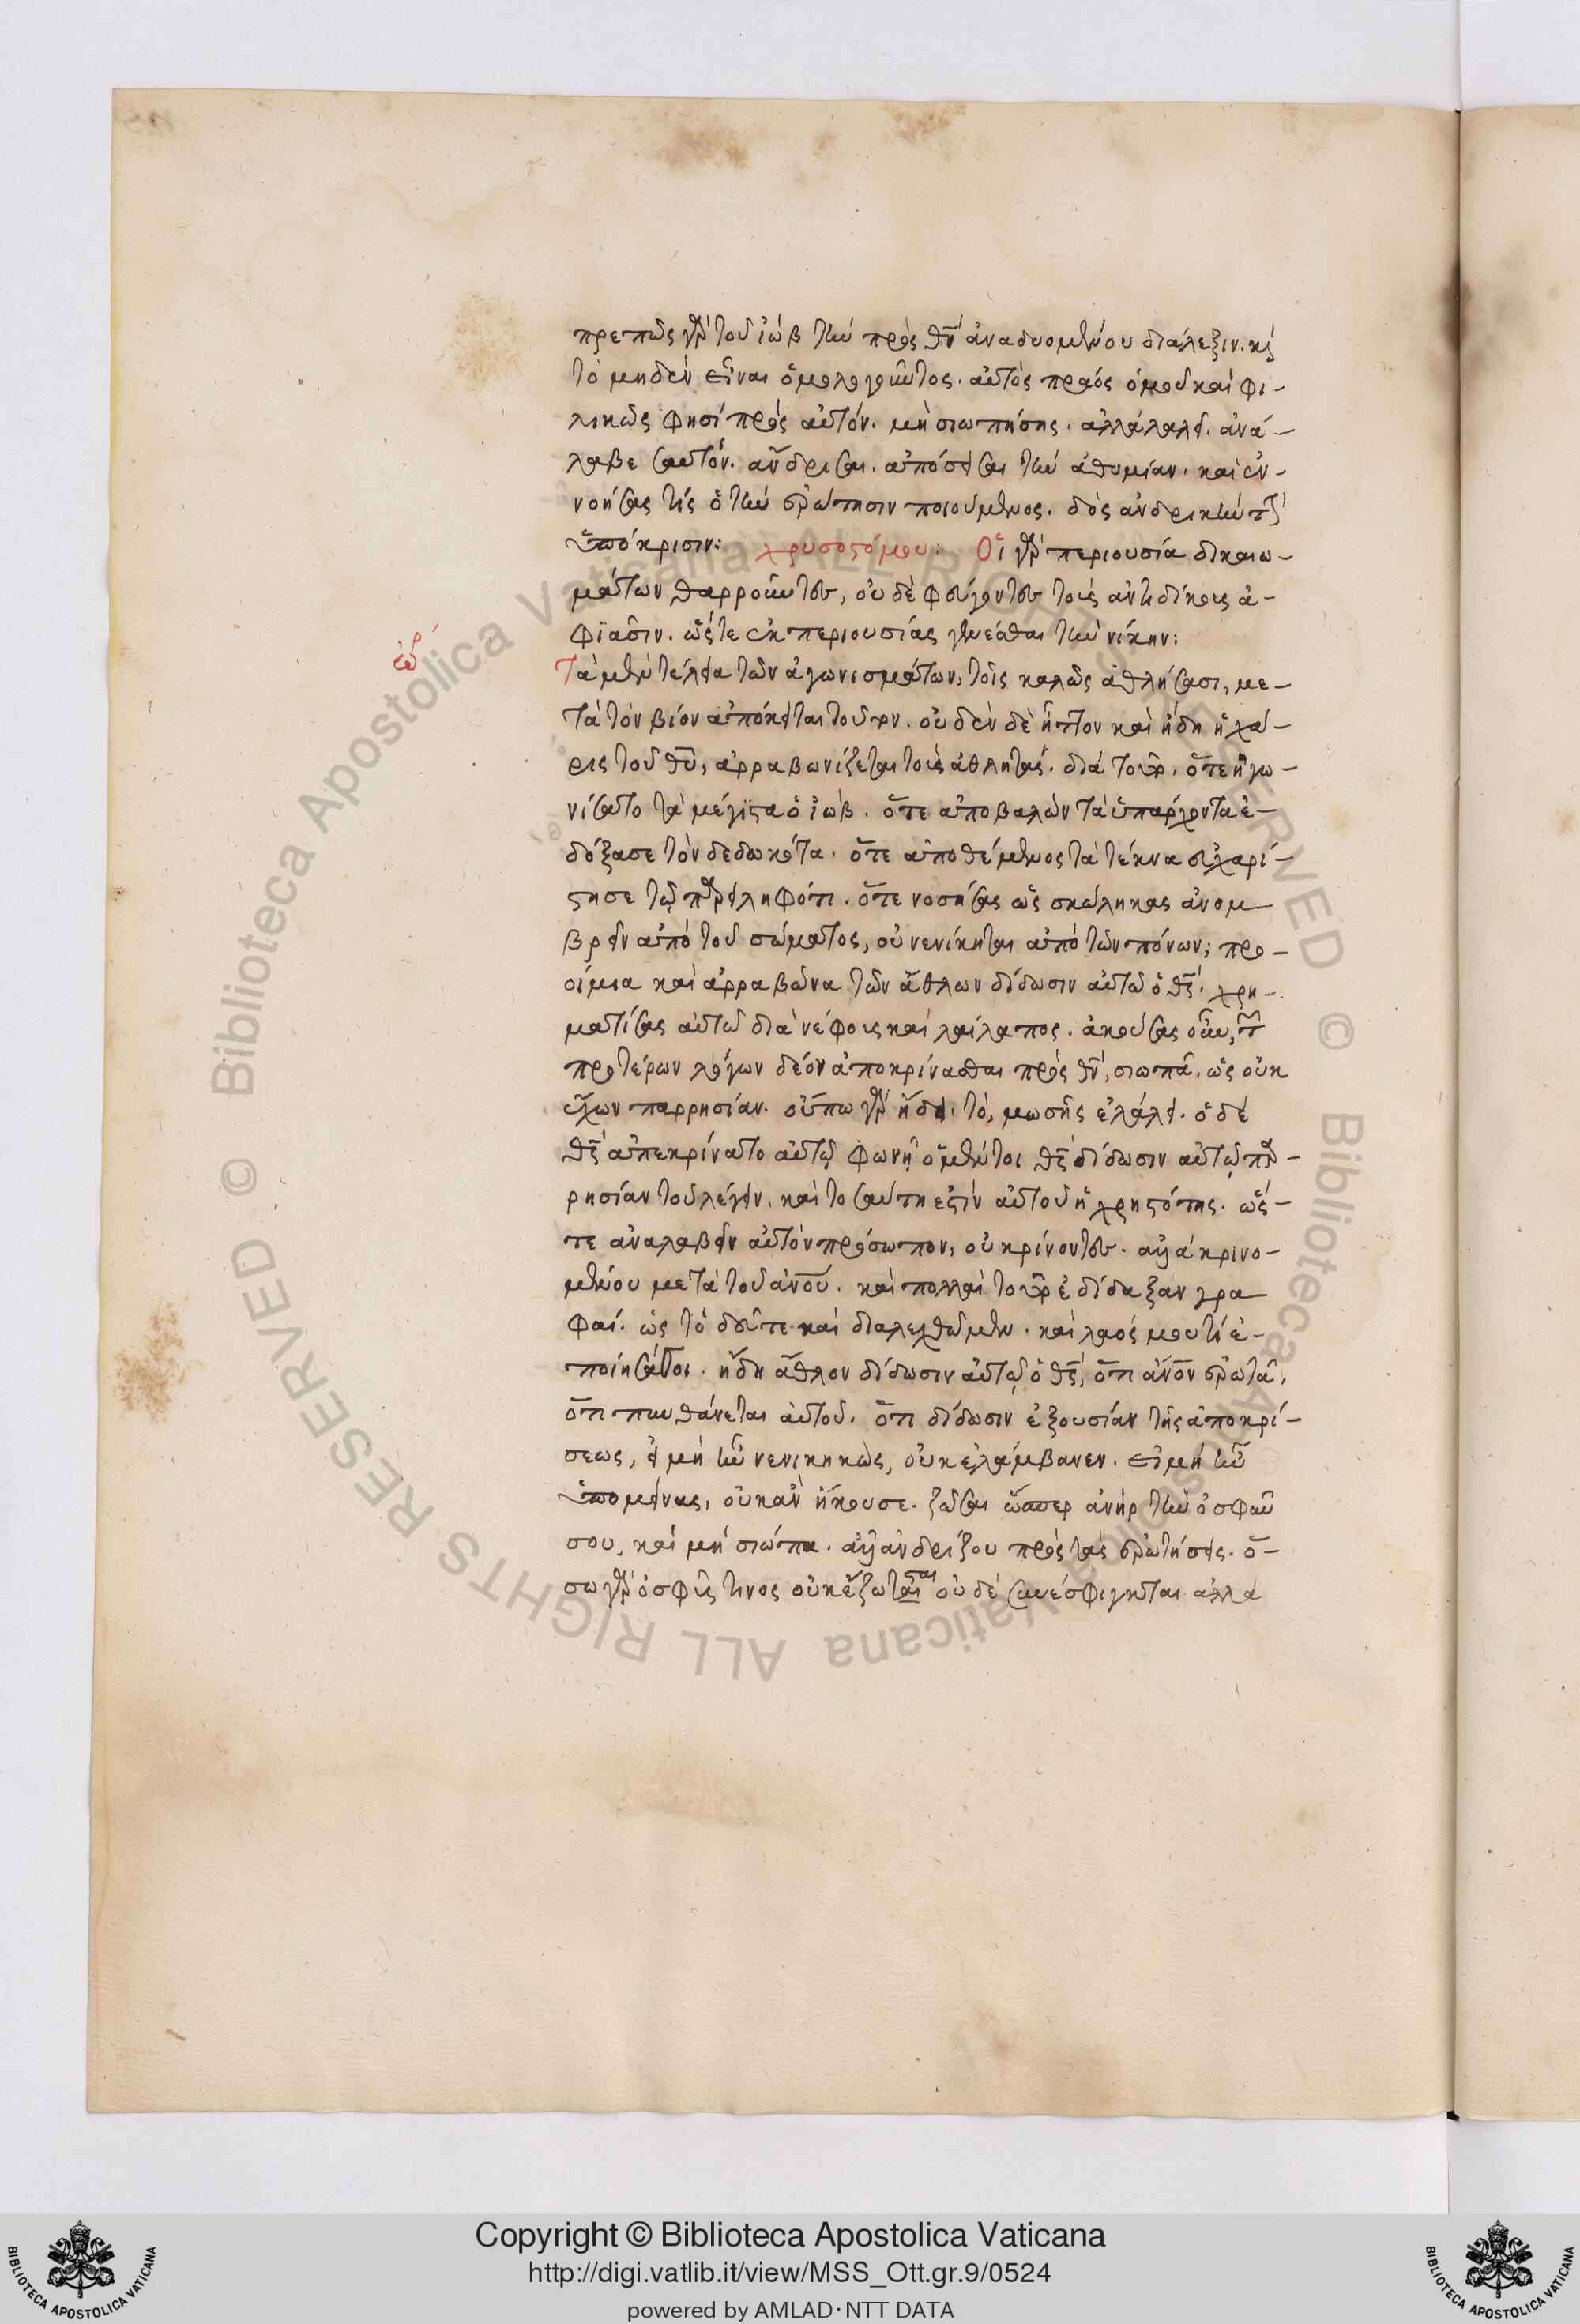 πρεπῶς γὰρ τοῦ ἰὼβ τὴν πρὸς θν ἀναδυομένου διάλεξιν. καὶ
τὸ μηδὲν εἶναι ὁμολογοῦντος. αὐτὸς πράος ὁμοῦ καὶ φι-
λικῶς φησὶ πρὸς αὐτόν. μὴ σιωπήσης. ἀλλὰ λάλει. ἀνά-
λαβε σαυτόν. ἄνδρισαι. ἀπόσεισαι τὴν ἀθυμίαν. καὶ ἐν-
νοήσας τίς ὁ τὴν ἐρώτησιν ποιούμενος. δὸς ἀνδρικὴν τὴν
ὑπόκρισιν: χρυσοστόμου: Οἱ γὰρ περιουσία δικαιω-
μάτων θαρροῦντες, οὐδὲ φεύγοντες τοὺς ἀντιδίκους ἀ-
φιᾶσιν. ὥστε ἐκ περιουσίας γενέσθαι τὴν νίκην:
Τὰ μὲν τέλεια τῶν ἀγωνισμάτων, τοῖς καλῶς ἀθλήσασι, με-
τὰ τὸν βίον ἀπόκειται τοῦτον. οὐδὲν δὲ ἧττον καὶ ἤδη ἡ χά-
ρις τοῦ θυ, ἀρραβωνίζεται τοὺς ἀθλητάς. διὰ τοῦτο. ὅτε ἠγω-
νίσατο τὰ μέγιστα ὁ ἰώβ. ὅτε ἀποβαλὼν τὰ ὑπάρχοντα ἐ-
δόξασε τὸν δεδωκότα. ὅτε ἀποθέμενος τὰ τέκνα εὐχαρί-
στησε τῷ παρειληφότι. ὅτε νοσήσας ὡς σκώληκας ἀνομ-
βρεῖν ἀπὸ τοῦ σώματος, οὐ νενίκηται ἀπὸ τῶν πόνων; προ-
οίμια καὶ ἀρραβῶνα τῶν ἄθλων δίδωσιν αὐτῶ ὁ θς. χρη-
ματίσας αὐτῶ διὰ νέφους καὶ λαίλαπος. ἀκούσας οὖν, τῶν
προτέρων λόγων δέον ἀποκρίνασθαι πρὸς θν, σιωπᾶ. ὡς οὐκ
ἔχων παρρησίαν. οὔπω γὰρ ἤδει τὸ, μωσῆς ἐλάλει. ὁ δὲ
θς ἀπεκρίνατο αὐτῷ φωνῇ ὁ μέντοι θς δίδωσιν αὐτῷ παρ-
ρησίαν τοῦ λέγειν. καὶ τοσαύτη ἐστὶν αὐτοῦ ἡ χρηστότης. ὥσ-
τε ἀναλαβεῖν αὐτὸν πρόσωπον, οὐ κρίνοντος. ἀλλὰ κρινο-
μένου μετὰ τοῦ ἀνου. καὶ πολλαὶ τοῦτο ἐδίδαξαν γρα-
φαί. ὡς τὸ δεῦτε καὶ διαλεχθῶμεν. καὶ λαός μου τί ἐ-
ποίησά σοι. ἤδη ἆθλον δίδωσιν αὐτῷ ὁ θς, ὅτι ἀνον ἐρωτᾶ,
ὅτι πυνθάνεται αὐτοῦ. ὅτι δίδωσιν ἐξουσίαν τῆς ἀποκρί-
σεως, εἰ μὴ ἦν νενικηκὼς, οὐκ ἐλάμβανεν. εἰ μὴ ἦν
ὑπομείνας, οὐκ ἂν ἤκουσε. ζῶσαι ὥσπερ ἀνὴρ τὴν ὀσφῦν
σου, καὶ μὴ σιώπα. ἀλλ' ἀνδρίζου πρὸς τὰς ἐρωτήσεις. ὅ-
σω γὰρ ὀσφῦς τινος οὐκ ἔζωσται οὐδὲ συνέσφιγκται ἀλλὰ
Copyright © Biblioteca Apostolica Vaticana
http://digi.vatlib.it/view/MSS_Ott.gr.9/0524
powered by AMLAD·NTT DATA